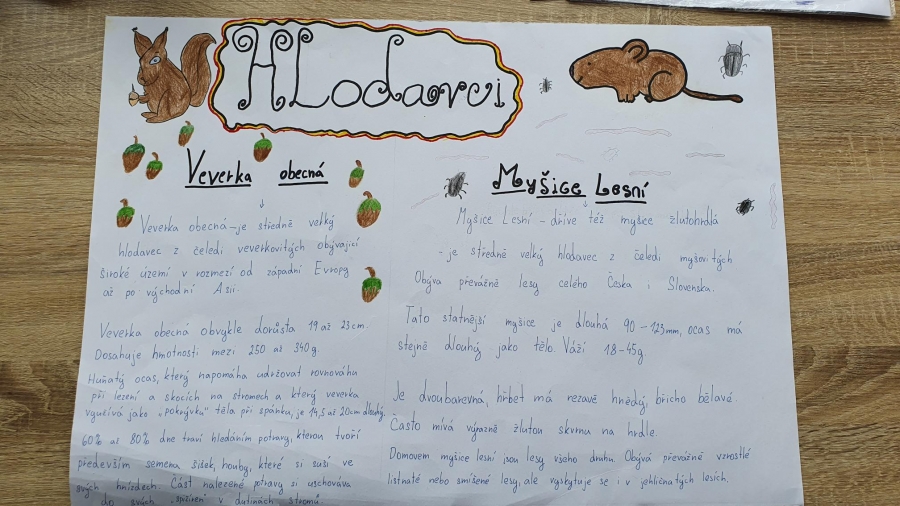 HLodavci
Veverka obecná
Veverka obecná-je středně velký
hlodavec z čeledi veverkovitých obývající
široké území v rozmezí od západní Evropy
až po východní Asii.
Veverka obecná obvykle dorůsta 19 až 23 cm.
Dosahuje hmotnosti mezi 250 až 340g.
Huňatý ocas, který napomáha udržovat rovnováhu
při lezení a skocích na stromech a který veverka
využívá jako „pokrývku" těla při spánku, je 14,5 až 20cm dlouhý.
60% až 80% dne traví hledáním potravy, kterou tvoří
především semena šišek, houby, které si suší ve
svých hnízdech. Část nalezené potravy si uschovává
do svých spížíren v dutinách stromů
Myšice Lesní
Myšice Lesní - dříve též myšice žlutohrdlá
- je středně velký hlodavec z čeledi myšovitých
Obýva převážně lesy celého Česka i Slovenska.
Tato statnější myšice je dlouhá 90 - 123mm, ocas má
stejně dlouhý jako tělo. Váží 18-45g.
Je dvoubarevná, hřbet má rezavě hnědý, břicho bělavé.
Často mívá výrazně žlutou skvrnu na hrdle.
Domovem myšice lesní jsou lesy všeho druhu. Obývá převážně vzrostlé
listnaté nebo smíšené lesy, ale vyskytuje se i v jehličnatých lesích.